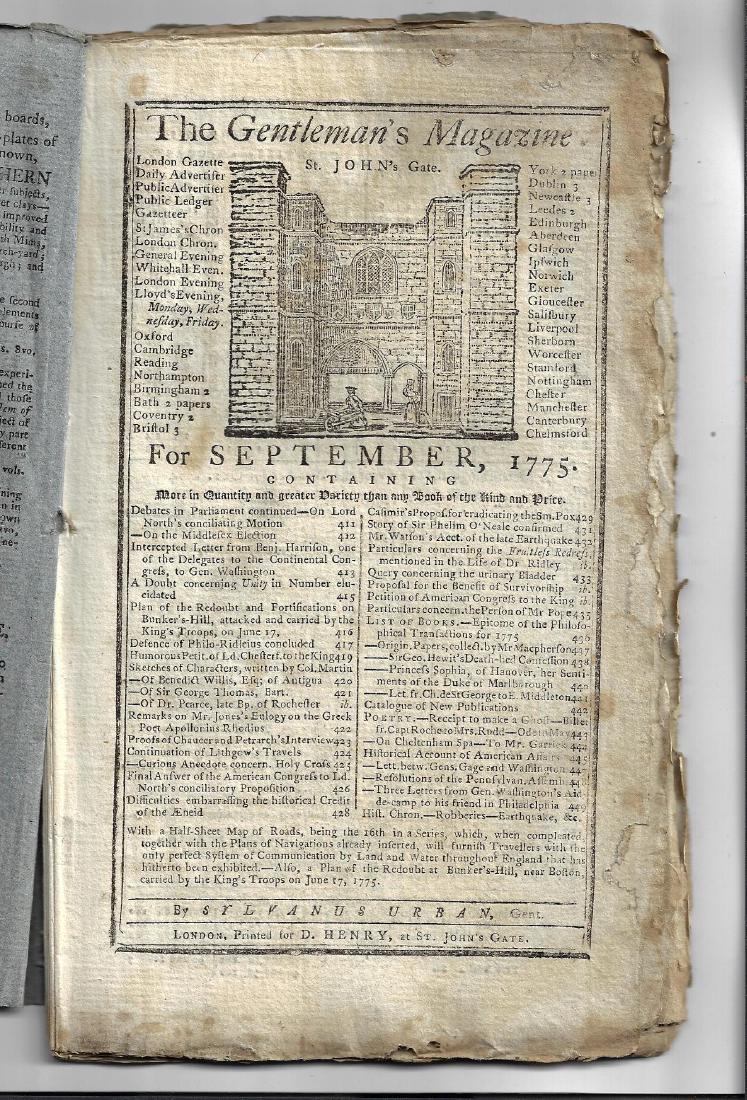 boards,
plates of
nown,
HERN
er subjects,
et clays—
improved
bility and
th Mims,
rch-yard;
and
e second
lements
ourse of
s. 8vo.
experi-
ned the
those
lem of
ject of
y part
ferent
vols.
ning
n in
own
ne-
The Gentleman's Magazine
St. JOHN's Gate.
London Gazette
Daily Advertiſer
PublicAdvertiſer
Public Ledger
Gazetteer
St James'sChron
London Chron.
General Evening
Whitehall Even.
London Evening
Lloyd'sEvening,
Monday, Wed-
neſday, Friday.
Oxford
Cambridge
Reading
Northampton
Birmingham 2
Bath 2 papers
Coventry 2
Briſtol 3
York 2 pape
Dublin 3
Newcaſtle 3
Leedes 2
Edinburgh
Aberdeen
Glaſgow
Ipſwich
Norwich
Exeter
Glouceſter
Saliſbury
Liverpool
Sherborn
Worceſter
Stamford
Nottingham
Cheſter
Mancheſter
Canterbury
Chelmsford
For SEPTEMBER, 1775.
CONTAINING
More in Quantity and greater Variety than any Book of the Kind and Price.
Debates in Parliament continued—On Lord
North's conciliating Motion 411
—On the Middleſex Election 412
Intercepted Letter from Benj. Harriſon, one
of the Delegates to the Continental Con-
greſs, to Gen. Waſhington 413
A Doubt concerning Unity in Number elu-
cidated 415
Plan of the Redoubt and Fortifications on
Bunker's-Hill, attacked and carried by the
King's Troops, on June 17, 416
Defence of Philo-Ridleius concluded 417
HumorousPetit.of Ld.Cheſterf.to theKing419
Sketches of Characters, written by Col.Martin
—Of Benedict Willis, Eſq; of Antigua 420
—Of Sir George Thomas, Bart. 421
—Of Dr. Pearce, late Bp. of Rocheſter ib.
Remarks on Mr. Jones's Eulogy on the Greek
Poet Apollonius Rhodius 422
Proofs of Chaucer and Petrarch's Interview423
Continuation of Lithgow's Travels 424
—Curious Anecdote concern. Holy Croſs 425
Final Anſwer of the American Congreſs to Ld.
North's conciliatory Propoſition 426
Difficulties embarraſſing the hiſtorical Credit
of the Æneid 428
Caſimir'sPropoſ.for eradicating theSm.Pox429
Story of Sir Phelim O'Neale confirmed 431
Mr. Watſon's Acct. of the late Earthquake 432
Particulars concerning the Fruitleſs Redreſs,
mentioned in the Life of Dr. Ridley ib.
Query concerning the urinary Bladder 433
Propoſal for the Benefit of Survivorſhip ib.
Petition of American Congreſs to the King ib.
Particulars concern.thePerſon of Mr Pope435
LIST OF BOOKS.—Epitome of the Philoſo-
phical Tranſactions for 1775 436
—Origin.Papers,collect.byMrMacpherſon437
——SirGeo.Hewit'sDeath-bed Confeſſion 438
——Princeſs Sophia, of Hanover, her Senti-
ments of the Duke of Marlborough 440
——Let.fr.Ch.deStGeorge to E. Middleton441
Catalogue of New Publications 442
POETRY.—Receipt to make a Ghoſt—Billet
fr.Capt Roche to Mrs.Rudd—Ode to May443
—On Cheltenham Spa—To Mr. Garrick 444
Hiſtorical Account of American Affairs 445
—Lett.betw.Gens.Gage and Waſhington 446
—Reſolutions of the Pennſylvan.Aſſemb
—Three Letters from Gen. Waſhington's Aid-
de-camp to his friend in Philadelphia 449
Hiſt. Chron.—Robberies—Earthquake, &c.
With a Half-Sheet Map of Roads, being the 16th in a Series, which, when compleated,
together with the Plans of Navigations already inſerted, will furniſh Travellers with the
only perfect Syſtem of Communication by Land and Water throughout England that has
hitherto been exhibited.—Alſo, a Plan of the Redoubt at Bunker's-Hill, near Boſton,
carried by the King's Troops on June 17, 1775.
By SYLVANUS URBAN, Gent.
LONDON, Printed for D. HENRY, at ST. JOHN'S GATE.